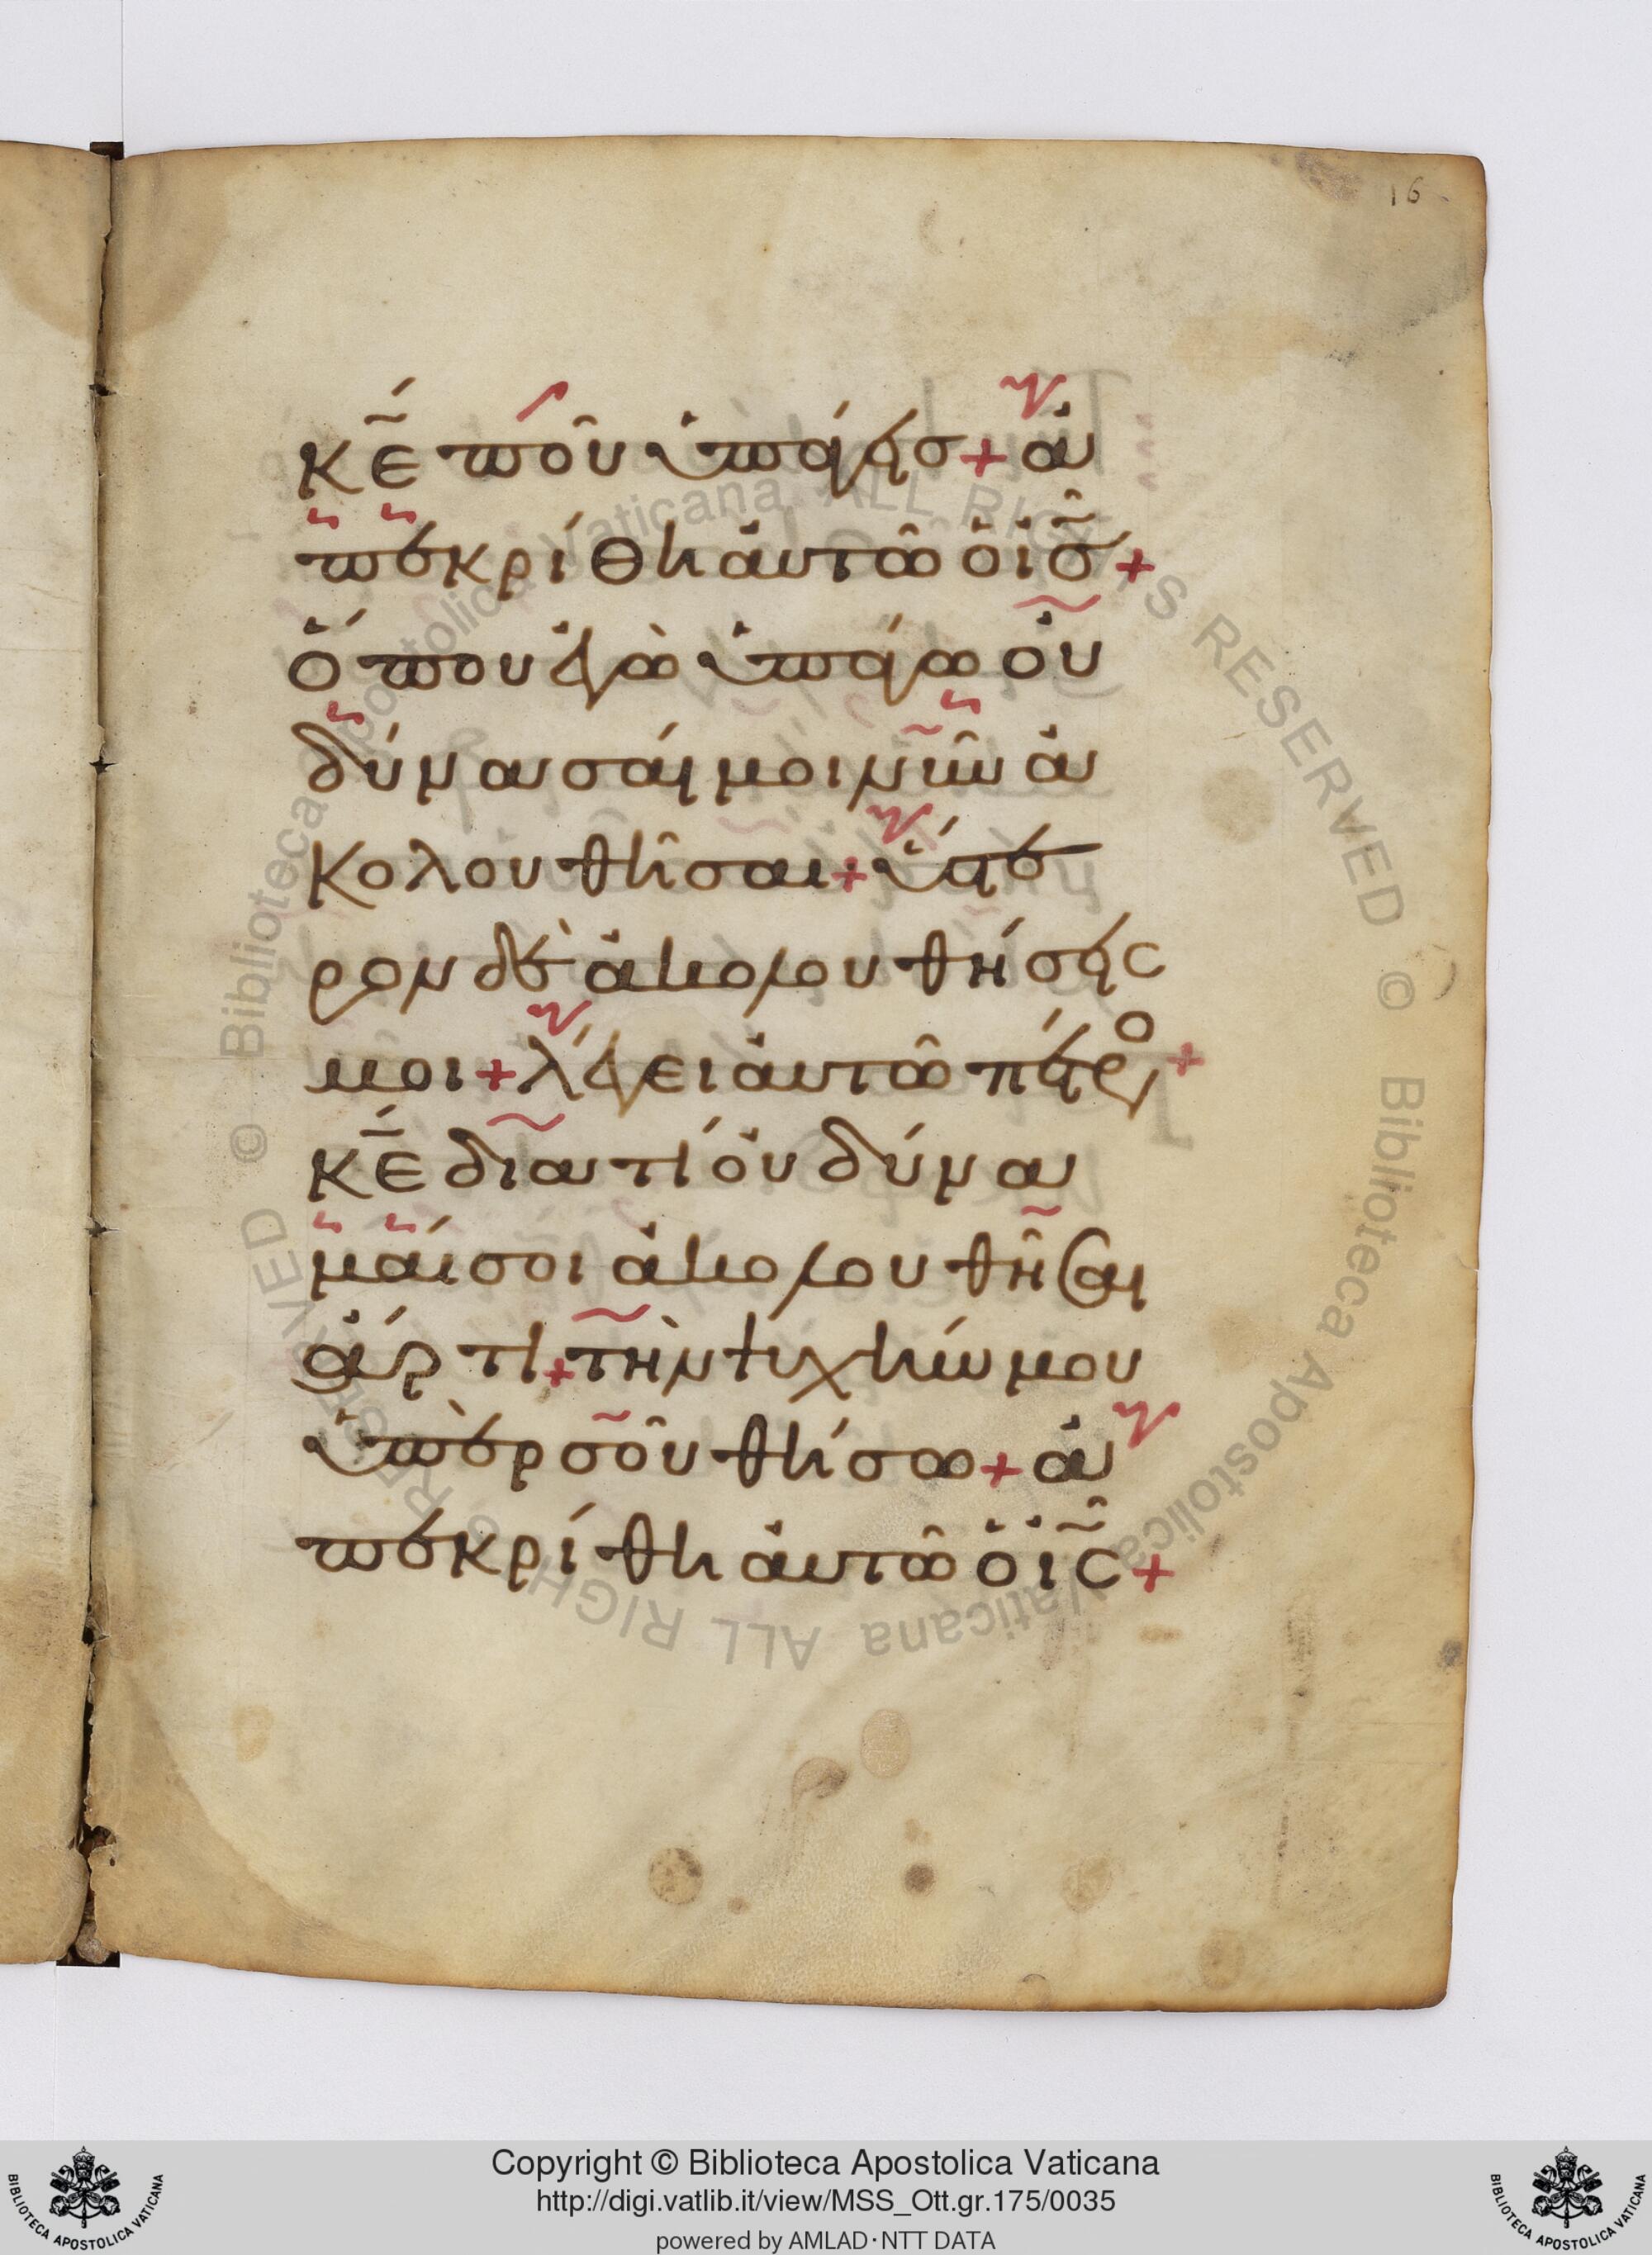 16
κ̅ε̅ ποῦ ὑπάγεισ + ἀ
πεκρίθη ἀυτῶ ὁ ἰ̅σ̅ +
ὅπου ἐγὼ ὑπάγω οὐ
δύνασαί μοι νῦν ἀ
κολουθῆσαι + ὕστε
ρον δὲ ἀκολουθήσεις
μοι + λέγει ἀυτῶ πέτρο +
κ̅ε̅ διατί ὀυ δύνα
μαί σοι ἀκολουθῆσαι
ἄρτι + τὴν ψυχήν μου
ὑπὲρ σοῦ θήσω + ἀ
πεκρίθη ἀυτῶ ὁ ἰ̅ς̅ +
© Biblioteca Apostolica Vaticana ALL RIGHTS RESERVED
© Biblioteca Apostolica Vaticana ALL RIGHTS RESERVED
Copyright © Biblioteca Apostolica Vaticana
http://digi.vatlib.it/view/MSS_Ott.gr.175/0035
powered by AMLAD·NTT DATA
BIBLIOTECA APOSTOLICA VATICANA
BIBLIOTECA APOSTOLICA VATICANA